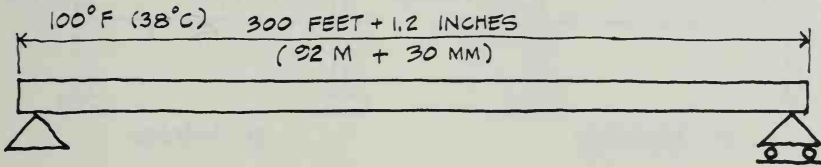 100°F (38°C) 300 FEET + 1.2 INCHES
(92 M + 30 MM)